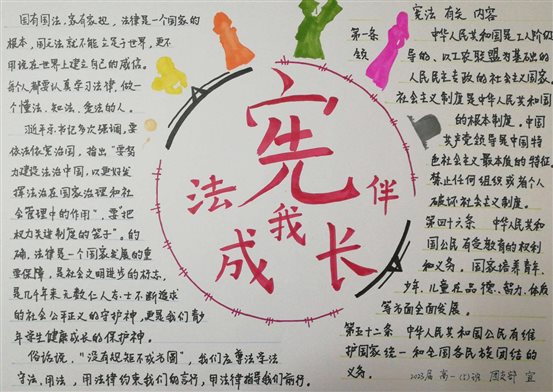 国有国法,家有家规,法律是一个国家的
根本,国无法就不能立足于世界,更不
用说在世界上建立自己的威信。
每个人都要认真学习法律,做一
个懂法、知法、爱法的人。
习近平书记多次强调,要
依法依宪治国,指出“要努
力建设法治中国,以更好发
挥法治在国家治理和社
会管理中的作用”,要“把
权力关进制度的笼子”。的
确,法律是一个国家发展的重
要保障,是社会文明进步的标志,
是几千年来无数仁人志士不断追求
的社会公平正义的守护神,更是我们青少
年学生健康成长的保护神。
俗话说,“没有规矩不成方圆”,我们应尊法学法
守法,用法,用法律约束我们的言行,用法律指导我们前行。
宪
法 我 伴
成 长
宪法 有关 内容
第一条 中华人民共和国是工人阶级
领导的、以工农联盟为基础的
人民民主专政的社会主义国家。
社会主义制度是中华人民共和国
的根本制度。中国
共产党领导是中国特
色社会主义最本质的特征。
禁止任何组织或者个人
破坏社会主义制度。
第四十六条 中华人民共和
国公民有受教育的权利
和义务。国家培养青年、
少年、儿童在品德、智力、体质
等方面全面发展。
第五十二条 中华人民共和国公民有维
护国家统一和全国各民族团结的
义务。
2023届高一(5)班